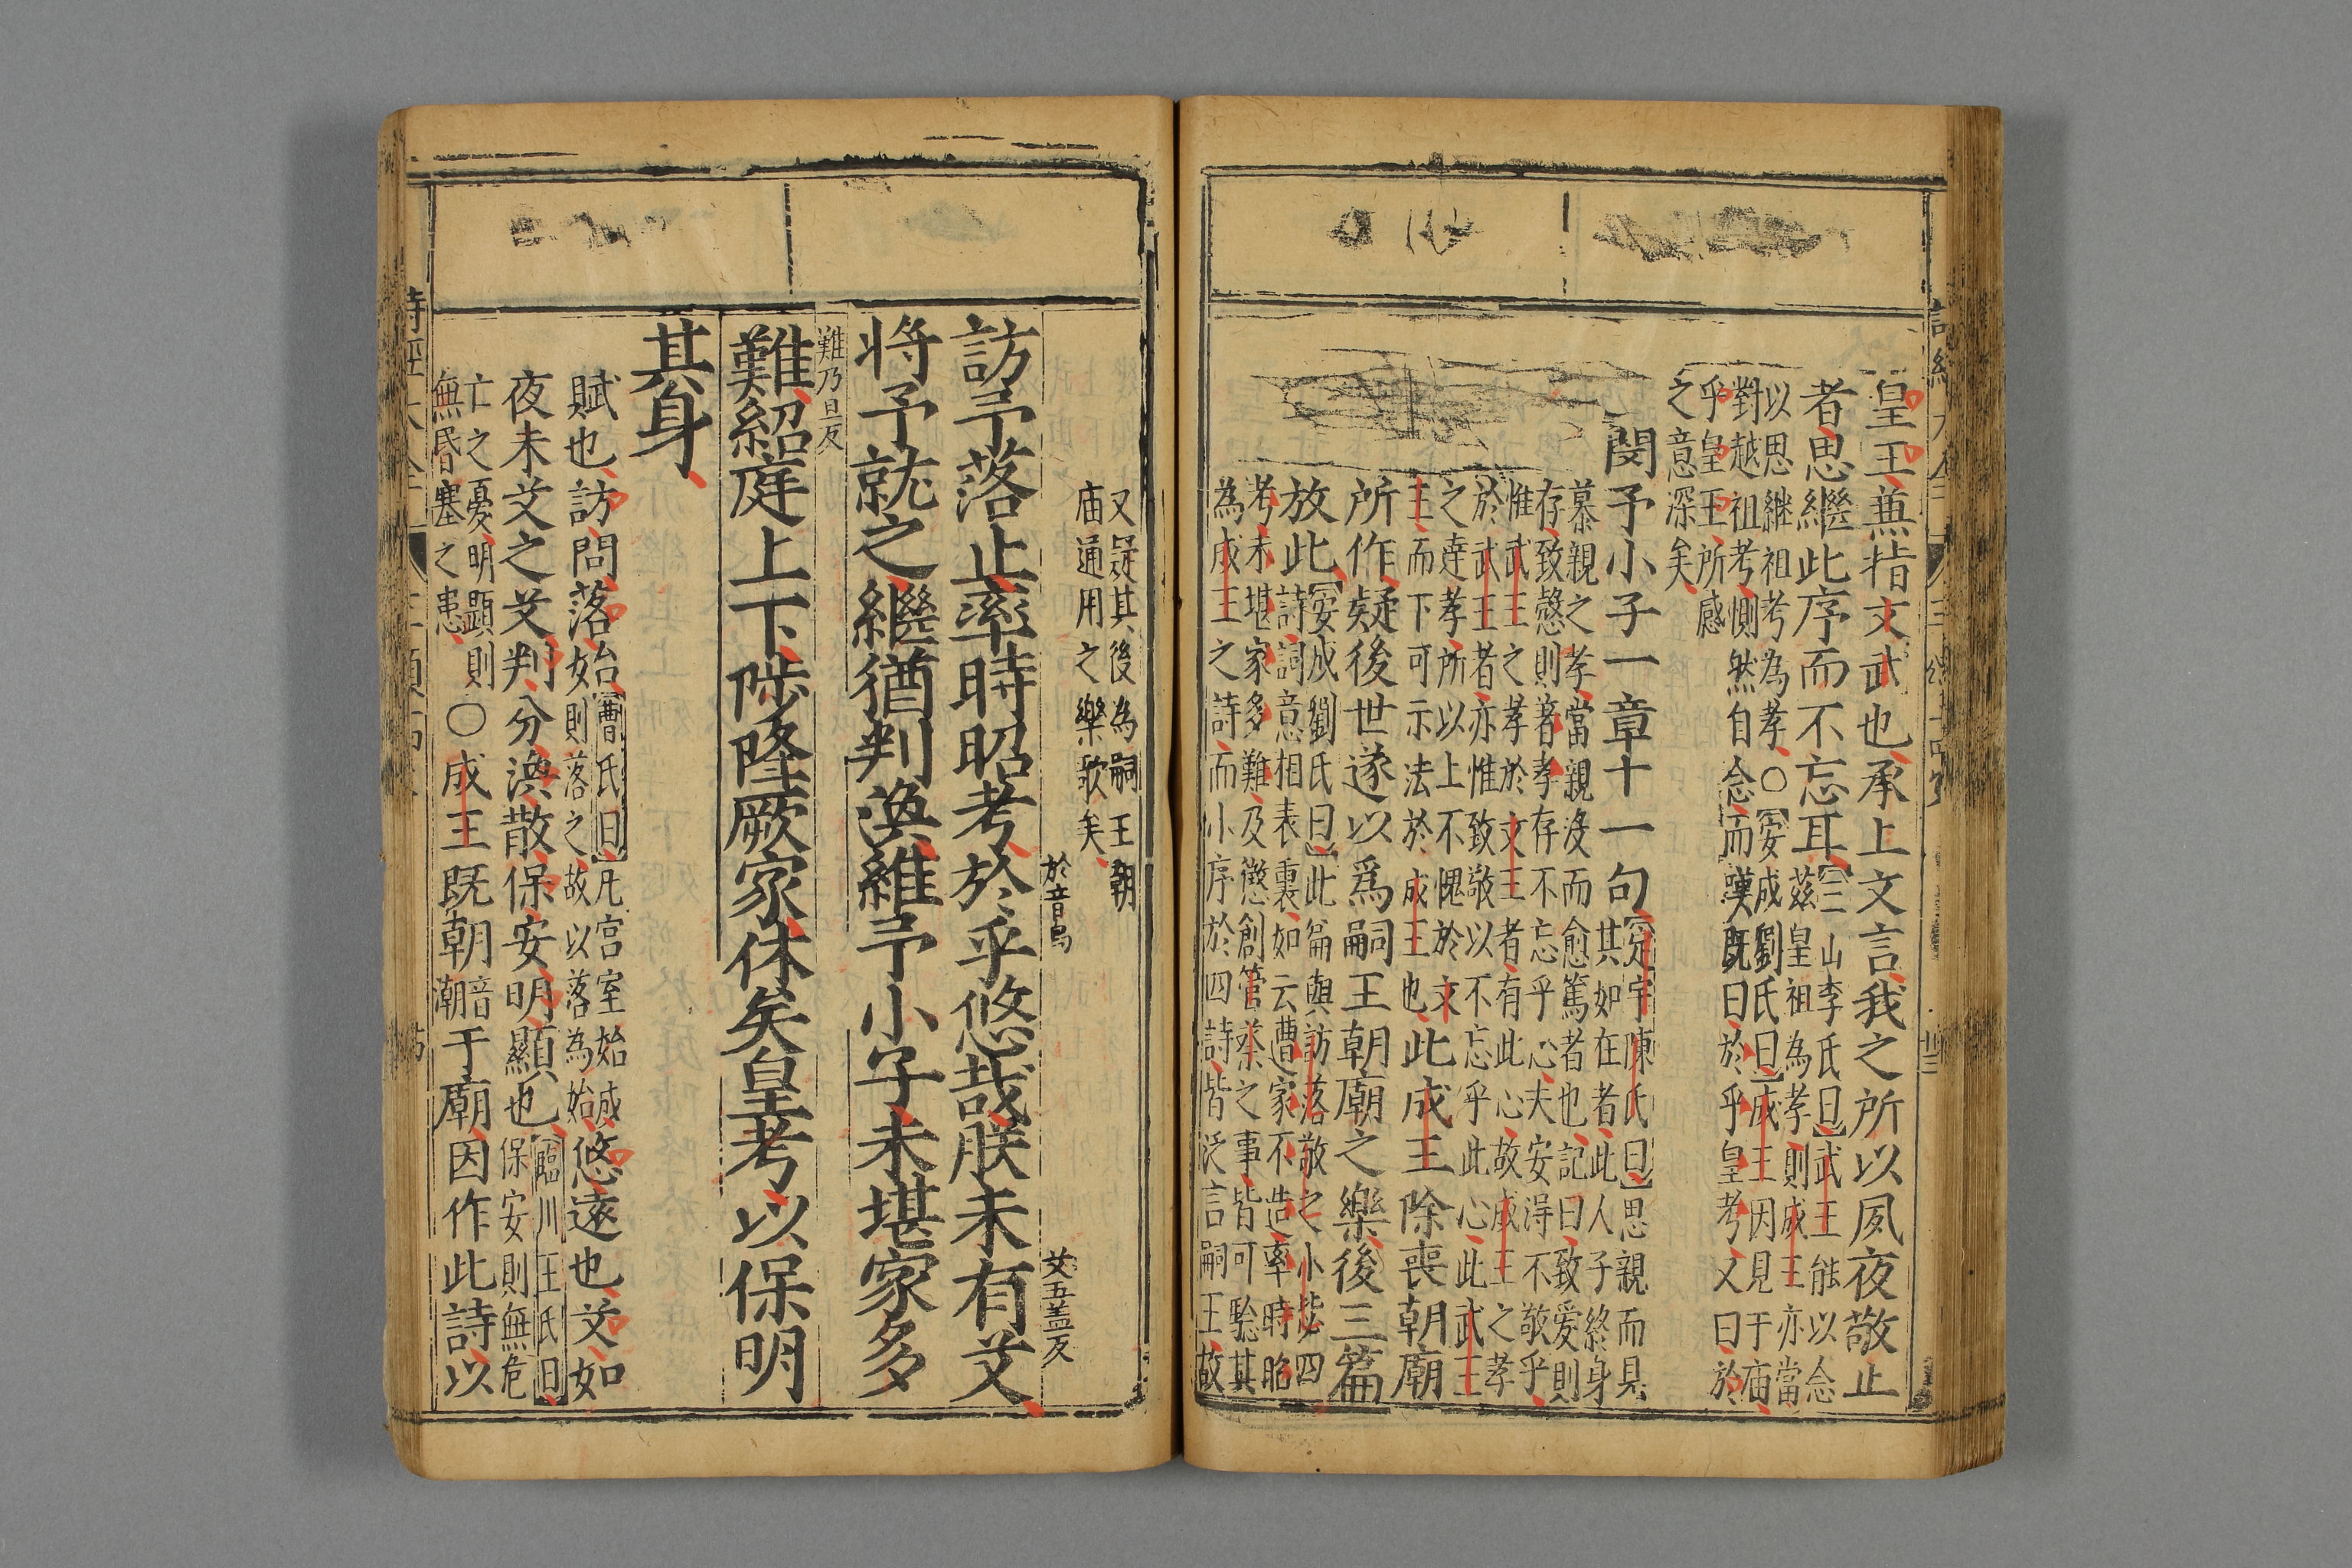 皇王兼指文武也承上文言我之所以夙夜敬止
者思繼此序而不忘耳【三山李氏曰】武王能以念
茲皇祖為孝則成王亦當
以思継祖考為孝○【安成劉氏曰】成王因見于庙
對越祖考惻然自念而嘆既曰於乎皇考又曰於
乎皇王所感
之意深矣
閔予小子一章十一句【定宇陳氏曰】思親而具
其如在者此人子終身
慕親之孝當親沒而愈篤者也記曰致爱則
存致慤則著孝存不忘乎心夫安淂不敬乎
惟武王之孝於文王者有此心故成王之孝
於武王者亦惟致敬以不忘乎此心此武王
之達孝所以上不愧於文
王而下可示法於成王也此成王除喪朝廟
所作疑後世遂以爲嗣王朝廟之樂後三篇
放此【安成劉氏曰】此篇與訪落敬之小毖四
詩詞意相表裏如云遭家不造率時昭
考未堪家多難及懲創管蔡之事皆可騐其
為成王之詩而小序於四詩皆泛言嗣王故
又疑其後為嗣王朝
庙通用之樂歌矣
於音烏
艾五盖反
訪予落止率時昭考於乎悠哉朕未有艾
將予就之繼猶判渙維予小子未堪家多
難乃旦反
難紹庭上下陟降厥家休矣皇考以保明
其身
賦也訪問落始【曹氏曰】凡宮室始成
則落之故以落為始悠遠也艾如
夜未艾之艾判分渙散保安明顯也【臨川王氏曰】
保安則無危
亡之憂明顯則
無昏塞之患○成王既朝音潮于廟因作此詩以